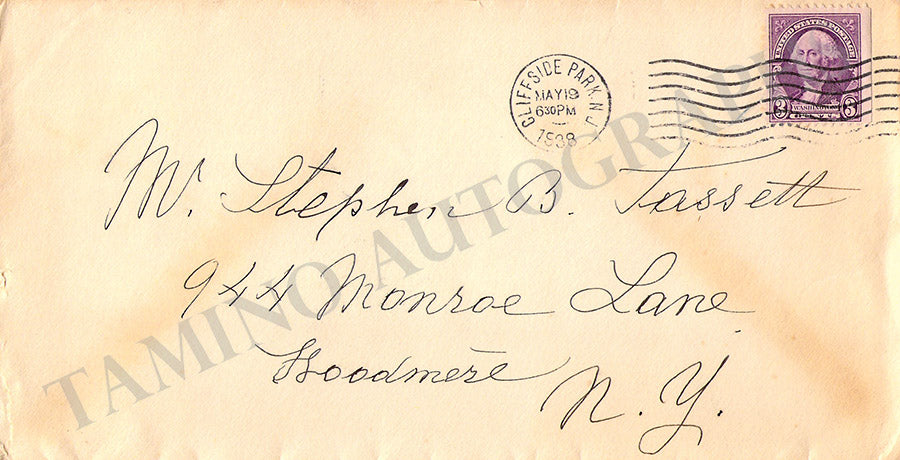 UNITED STATES POSTAGE
3 WASHINGTON 3
CLIFFSIDE PARK. N.J.
MAY 19
630 PM
1938
Mr. Stephen B. Tassett
944 Monroe Lane
Woodmere
N. Y.
TAMINO AUTOGRAPHS